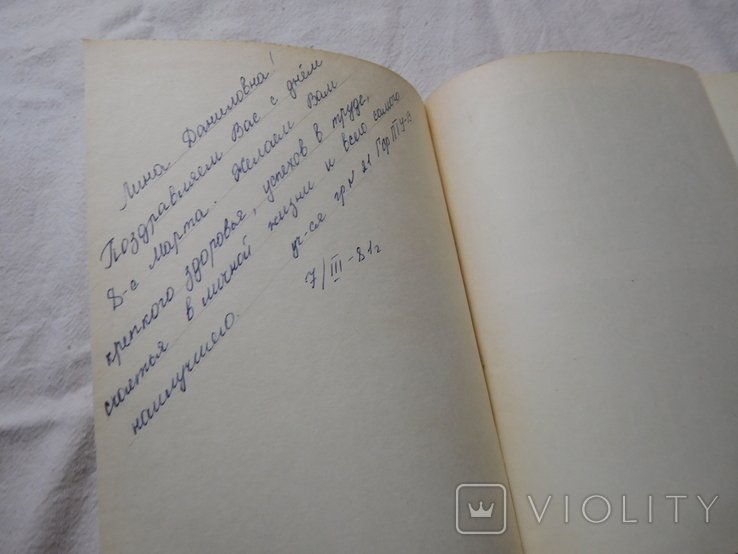 Лина Даниловна!
Поздравляем Вас с днём
8-е Марта. Желаем Вам
крепкого здоровья, успехов в труде,
счастья в личной жизни и всего самого
наилучшего.
уч-ся гр N 21
7/III-81г
VIOLITY